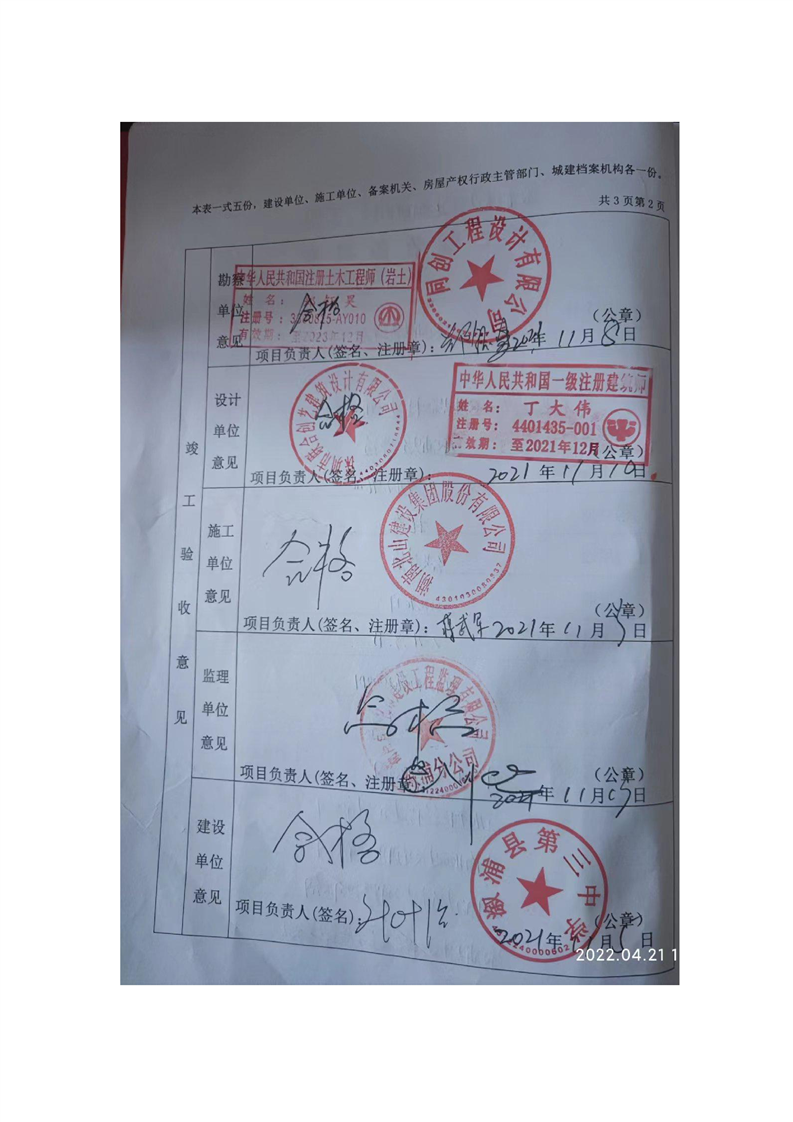 本表一式五份，建设单位、施工单位、备案机关、房屋产权行政主管部门、城建档案机构各一份。
共3页第2页
竣工验收意见
勘察单位意见
合格
中华人民共和国注册土木工程师（岩土）
姓名：
注册号：
有效期：至2023年12月
同创工程设计有限公司
（公章）
项目负责人(签名、注册章)：
2021年11月5日
设计单位意见
合格
创艺建筑设计有限公司
中华人民共和国一级注册建筑师
姓名：丁大伟
注册号：4401435-001
有效期：至2021年12月
（公章）
项目负责人(签名、注册章)：
2021年11月10日
施工单位意见
合格
湖南北山建设集团股份有限公司
（公章）
项目负责人(签名、注册章)：
2021年11月5日
监理单位意见
合格
建设工程监理有限公司
溆浦分公司
（公章）
项目负责人(签名、注册章)
2021年11月5日
建设单位意见
合格
溆浦县第三中学
（公章）
项目负责人(签名)：
2021年11月5日
2022.04.21 1